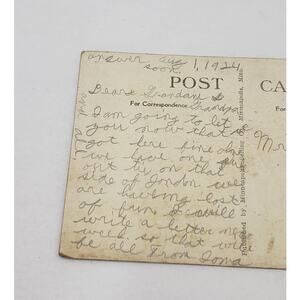 answer soon
Aug 1, 1924
POST CA
For Correspondence
Dear Grandma &
Grandpa
I am going to let
you now that
got here fine
we have one
out by on that
side of London we
are having lots
of fun I will
write a letter
week so that will
be all From Iowa
and all
Mr
Published by Minneapolis, Minn.